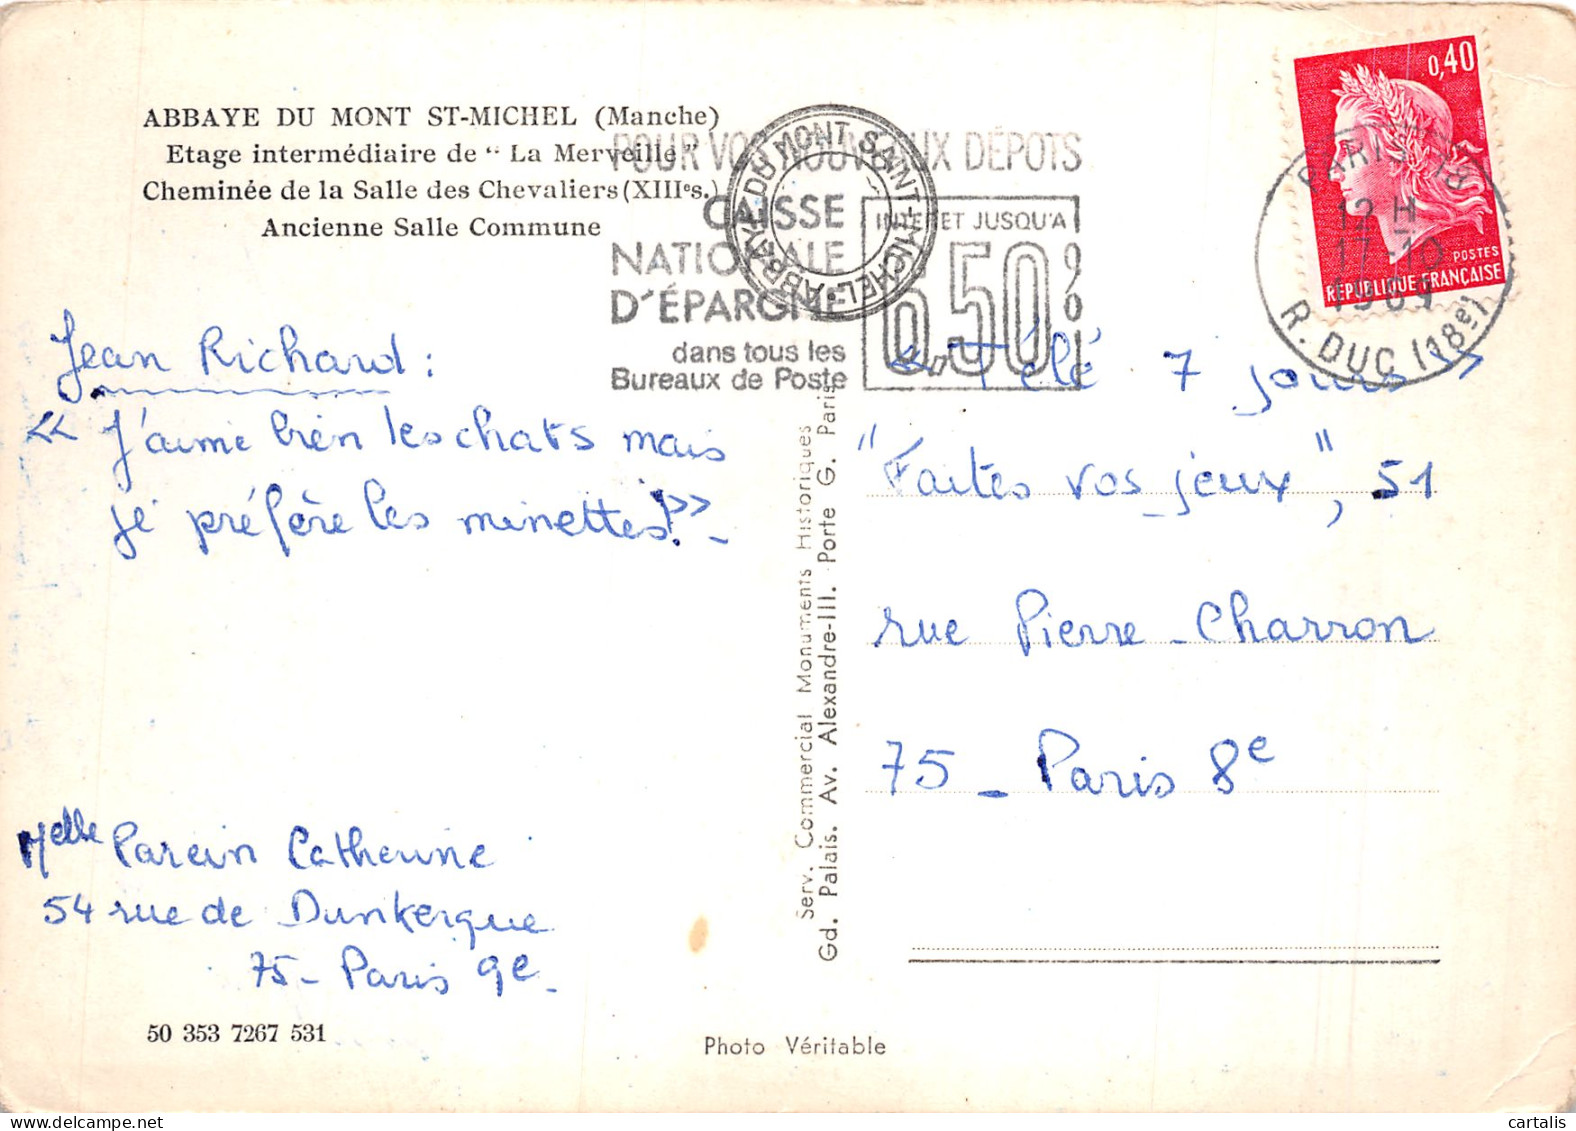 ABBAYE DU MONT ST-MICHEL (Manche)
Etage intermédiaire de “ La Merveille”
Cheminée de la Salle des Chevaliers (XIIIᵉs.)
Ancienne Salle Commune
POUR VOS NOUVEAUX DÉPOTS
CAISSE
NATIONALE
D'ÉPARGNE
dans tous les
Bureaux de Poste
INTERET JUSQU'A
6.50%
ABBAYE DU MONT SAINT-MICHEL
0,40
POSTES
REPUBLIQUE FRANÇAISE
PARIS 118
12 H
17-10
1969
R. DUC (18e)
Jean Richard :
<< J'aime bien les chats mais
je préfère les minettes! >>-
Melle Parein Catherine
54 rue de Dunkerque
75- Paris 9e-
50 353 7267 531
Serv. Commercial Monuments Historiques
Gd. Palais. Av. Alexandre-III. Porte G. Paris
<< Télé 7 jours >>
"Faites vos jeux", 51
rue Pierre-Charron
75 - Paris 8e
Photo Véritable
cartalis
www.delcampe.net